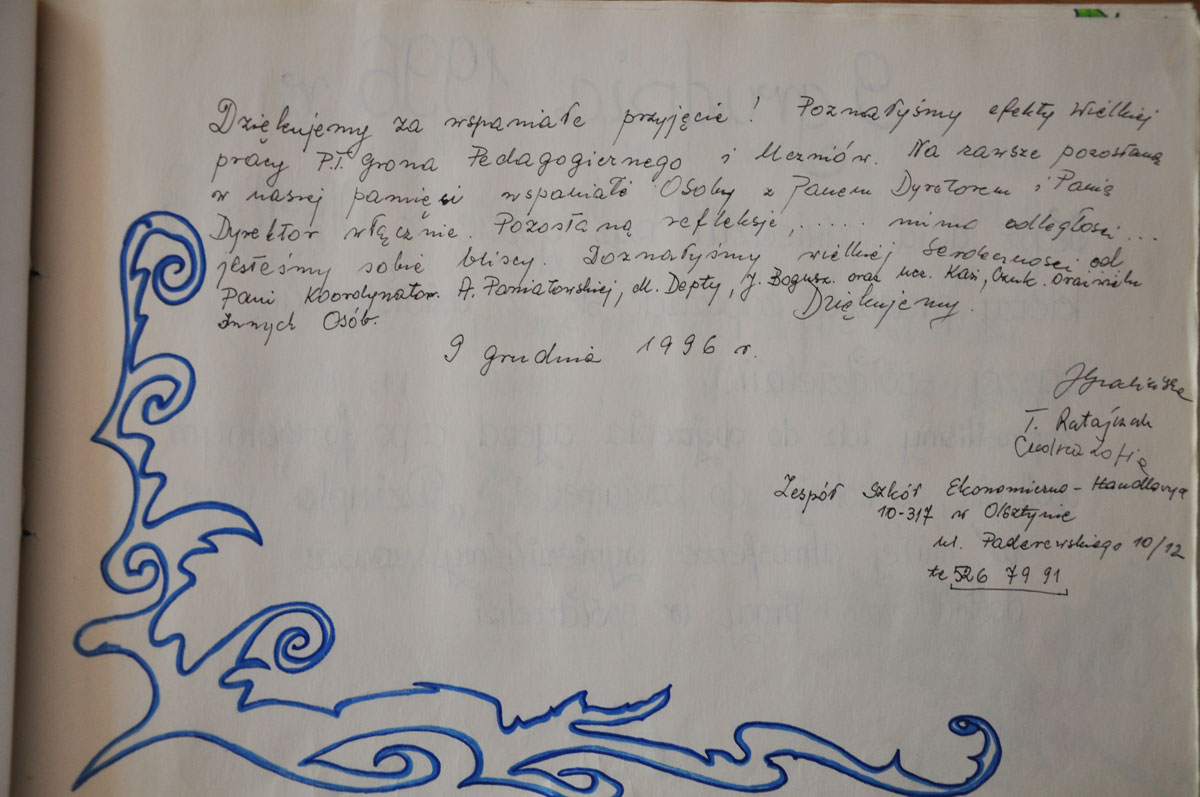 Dziękujemy za wspaniałe przyjęcie! Poznałyśmy efekty Wielkiej
pracy P.T. Grona Pedagogicznego i Uczniów. Na zawsze pozostaną
w naszej pamięci wspaniałe Osoby z Panem Dyrektorem i Panią
Dyrektor włącznie. Pozostaną refleksje, ..... mimo odległości...
jesteśmy sobie bliscy. Doznałyśmy wielkiej Serdeczności od
Pani Koordynator. A. Poniatowskiej, M. Depty, J. Bogusz. oraz ucz. Kasi, Oraz wielu
Innych Osób. Dziękujemy.
9 grudnia 1996 r.
T. Ratajczak
Zofia
Zespół Szkół Ekonomiczno-Handlowych
10-317 w Olsztynie
ul. Paderewskiego 10/12
526 79 91